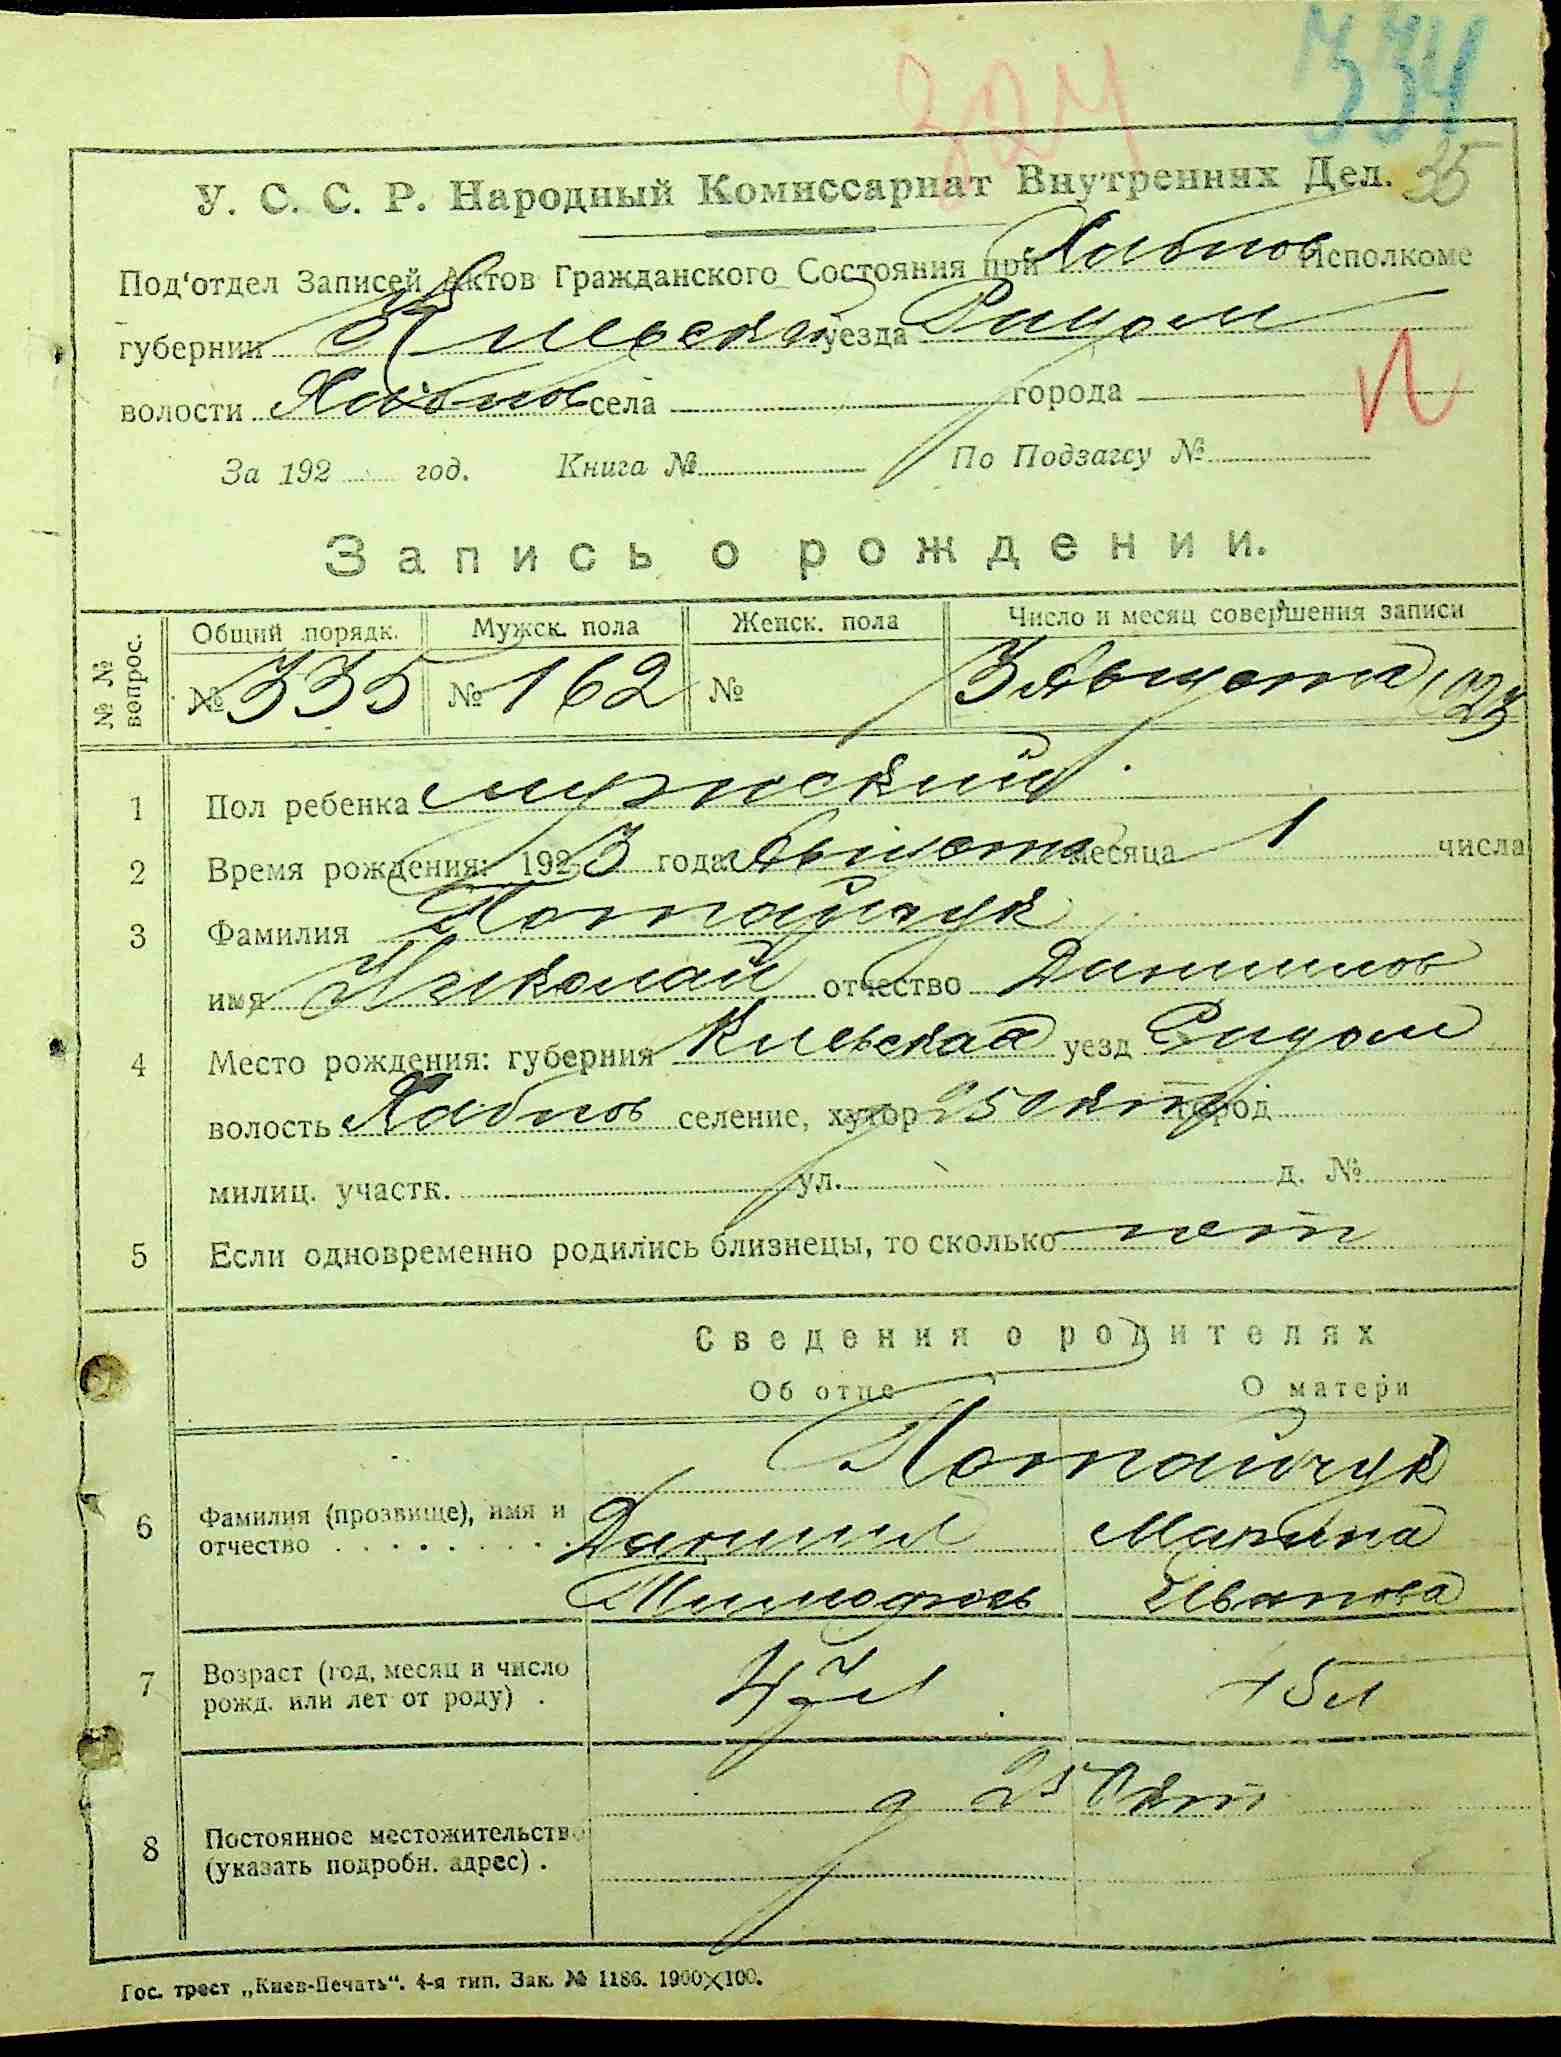 324 334
35
У. С. С. Р. Народный Комиссариат Внутренних Дел.
Под'отдел Записей Актов Гражданского Состояния при Хабнов Исполкоме
губернии Киевской уезда Радом
волости Хабнов села города
За 192 год. Книга № По Подзагсу №
Запись о рождении.
№ № вопрос. Общий порядк. Мужск. пола Женск. пола Число и месяц совершения записи
№ 335 № 162 № 3 Августа 1923
1 Пол ребенка мужский
2 Время рождения: 1923 года Августа месяца 1 числа
3 Фамилия Потайчук
имя Николай отчество Данилов
4 Место рождения: губерния Киевская уезд Радом
волость Хабнов селение, хутор город
милиц. участк. ул. д. №
5 Если одновременно родились близнецы, то сколько нет
Сведения о родителях
Об отце О матери
Потайчук
6 Фамилия (прозвище), имя и отчество Даниил Марина
Тимофеев Иванова
7 Возраст (год, месяц и число рожд. или лет от роду) . 47 л 45 л
8 Постоянное местожительство (указать подробн. адрес) .
Гос. трест „Киев-Печать“. 4-я тип. Зак. № 1186. 1900×100.